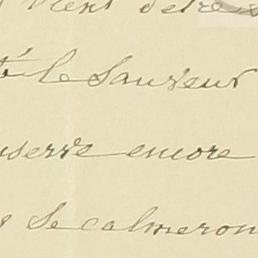 vient d'etre
le Sauveur
serve encore
se calmeron